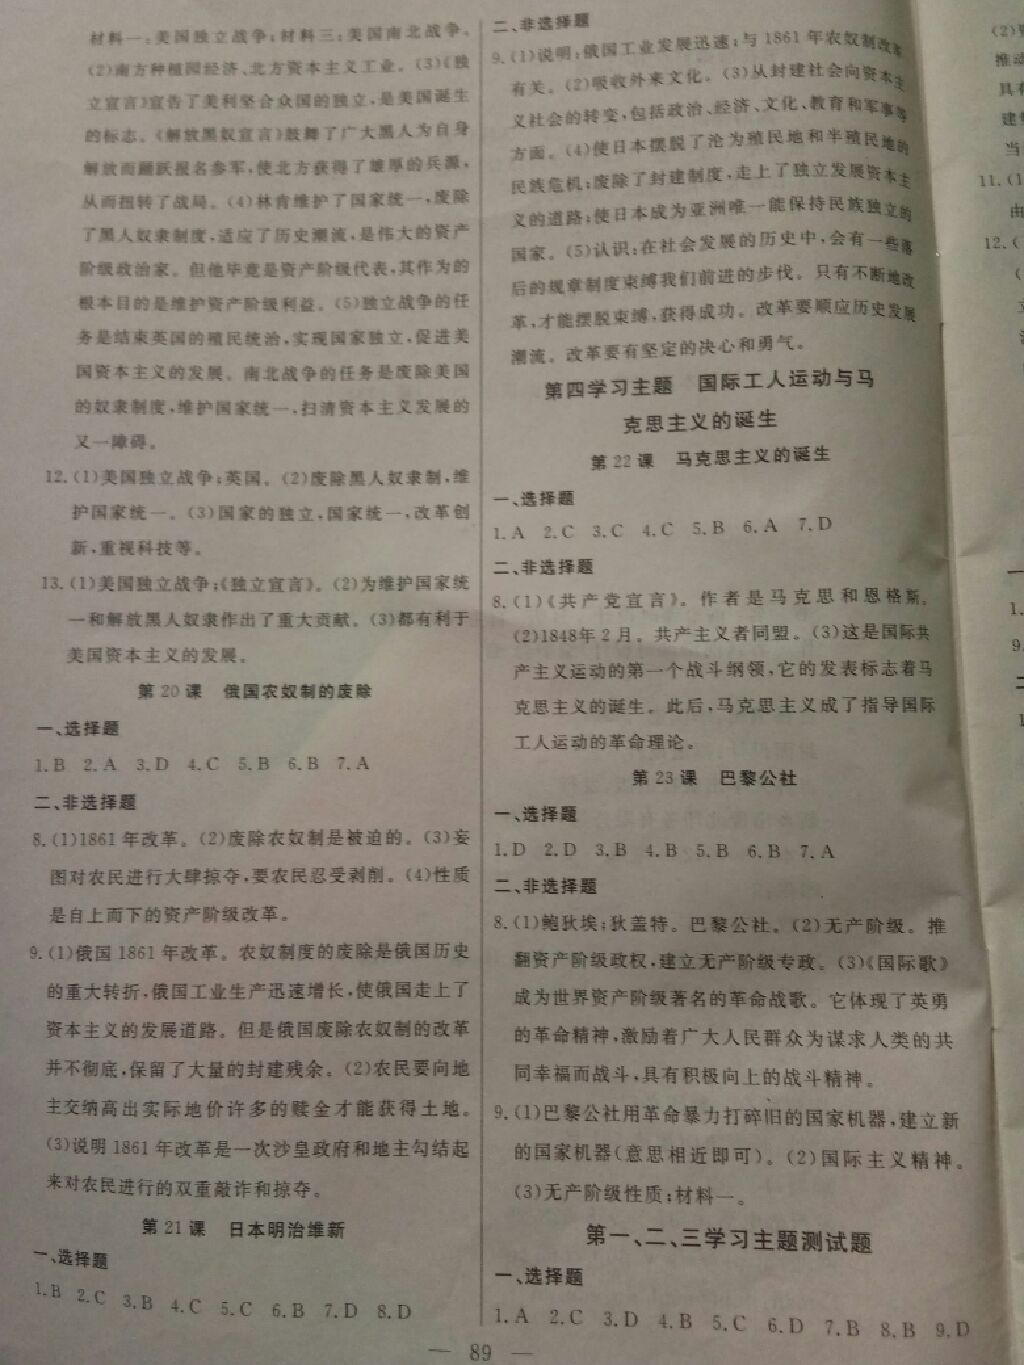 材料一:美国独立战争;材料三:美国南北战争。
(2)南方种植园经济、北方资本主义工业。(3)《独
立宣言》宣告了美利坚合众国的独立,是美国诞生
的标志。《解放黑奴宣言》鼓舞了广大黑人为自身
解放而踊跃报名参军,使北方获得了雄厚的兵源,
从而扭转了战局。(4)林肯维护了国家统一,废除
了黑人奴隶制度,适应了历史潮流,是伟大的资产
阶级政治家。但他毕竟是资产阶级代表,其作为的
根本目的是维护资产阶级利益。(5)独立战争的任
务是结束英国的殖民统治,实现国家独立,促进美
国资本主义的发展。南北战争的任务是废除美国
的奴隶制度,维护国家统一,扫清资本主义发展的
又一障碍。
12.(1)美国独立战争;英国。(2)废除黑人奴隶制,维
护国家统一。(3)国家的独立,国家统一,改革创
新,重视科技等。
13.(1)美国独立战争;《独立宣言》。(2)为维护国家统
一和解放黑人奴隶作出了重大贡献。(3)都有利于
美国资本主义的发展。
第20课 俄国农奴制的废除
一、选择题
1.B 2.A 3.D 4.C 5.B 6.B 7.A
二、非选择题
8.(1)1861年改革。(2)废除农奴制是被迫的。(3)妄
图对农民进行大肆掠夺,要农民忍受剥削。(4)性质
是自上而下的资产阶级改革。
9.(1)俄国1861年改革。农奴制度的废除是俄国历史
的重大转折,俄国工业生产迅速增长,使俄国走上了
资本主义的发展道路。但是俄国废除农奴制的改革
并不彻底,保留了大量的封建残余。(2)农民要向地
主交纳高出实际地价许多的赎金才能获得土地。
(3)说明1861年改革是一次沙皇政府和地主勾结起
来对农民进行的双重敲诈和掠夺。
第21课 日本明治维新
一、选择题
1.B 2.C 3.B 4.C 5.C 6.B 7.D 8.D
二、非选择题
9.(1)说明:俄国工业发展迅速;与1861年农奴制改革
有关。(2)吸收外来文化。(3)从封建社会向资本主
义社会的转变,包括政治、经济、文化、教育和军事等
方面。(4)使日本摆脱了沦为殖民地和半殖民地的
民族危机;废除了封建制度,走上了独立发展资本主
义的道路;使日本成为亚洲唯一能保持民族独立的
国家。(5)认识:在社会发展的历史中,会有一些落
后的规章制度束缚我们前进的步伐。只有不断地改
革,才能摆脱束缚,获得成功。改革要顺应历史发展
潮流。改革要有坚定的决心和勇气。
第四学习主题 国际工人运动与马
克思主义的诞生
第22课 马克思主义的诞生
一、选择题
1.A 2.C 3.C 4.C 5.B 6.A 7.D
二、非选择题
8.(1)《共产党宣言》。作者是马克思和恩格斯。
(2)1848年2月。共产主义者同盟。(3)这是国际共
产主义运动的第一个战斗纲领,它的发表标志着马
克思主义的诞生。此后,马克思主义成了指导国际
工人运动的革命理论。
第23课 巴黎公社
一、选择题
1.D 2.D 3.B 4.B 5.B 6.B 7.A
二、非选择题
8.(1)鲍狄埃;狄盖特。巴黎公社。(2)无产阶级。推
翻资产阶级政权,建立无产阶级专政。(3)《国际歌》
成为世界资产阶级著名的革命战歌。它体现了英勇
的革命精神,激励着广大人民群众为谋求人类的共
同幸福而战斗,具有积极向上的战斗精神。
9.(1)巴黎公社用革命暴力打碎旧的国家机器,建立新
的国家机器(意思相近即可)。(2)国际主义精神。
(3)无产阶级性质;材料一。
第一、二、三学习主题测试题
一、选择题
1.A 2.C 3.D 4.B 5.C 6.D 7.B 8.B 9.D
— 89 —
推动
建
当
11.(1
由
12.(
1.
9.